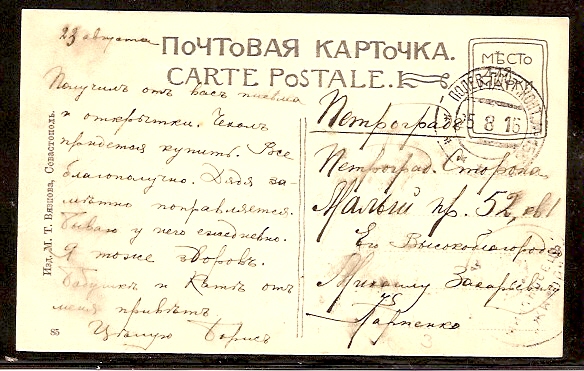 23 августа
ПОЧТОВАЯ КАРТОЧКА.
CARTE POSTALE.
МѢСТО
ДЛЯ
МАРКИ
25 8 16
Получилъ отъ васъ письма
и открытки. Чехолъ
придется купить. Все
благополучно. Дядя за-
мѣтно поправляется.
Бываю у него ежедневно.
Я тоже здоровъ.
Бабушкѣ и Катѣ отъ
меня привѣтъ
Цѣлую Борисъ
Петроградъ
Петроград. Сторона
Малый пр. 52, кв 1
Его Высокоблагородію
Михаилу Захарьевичу
Карпенко
Изд. М. Т. Вязнова, Севастополь.
85